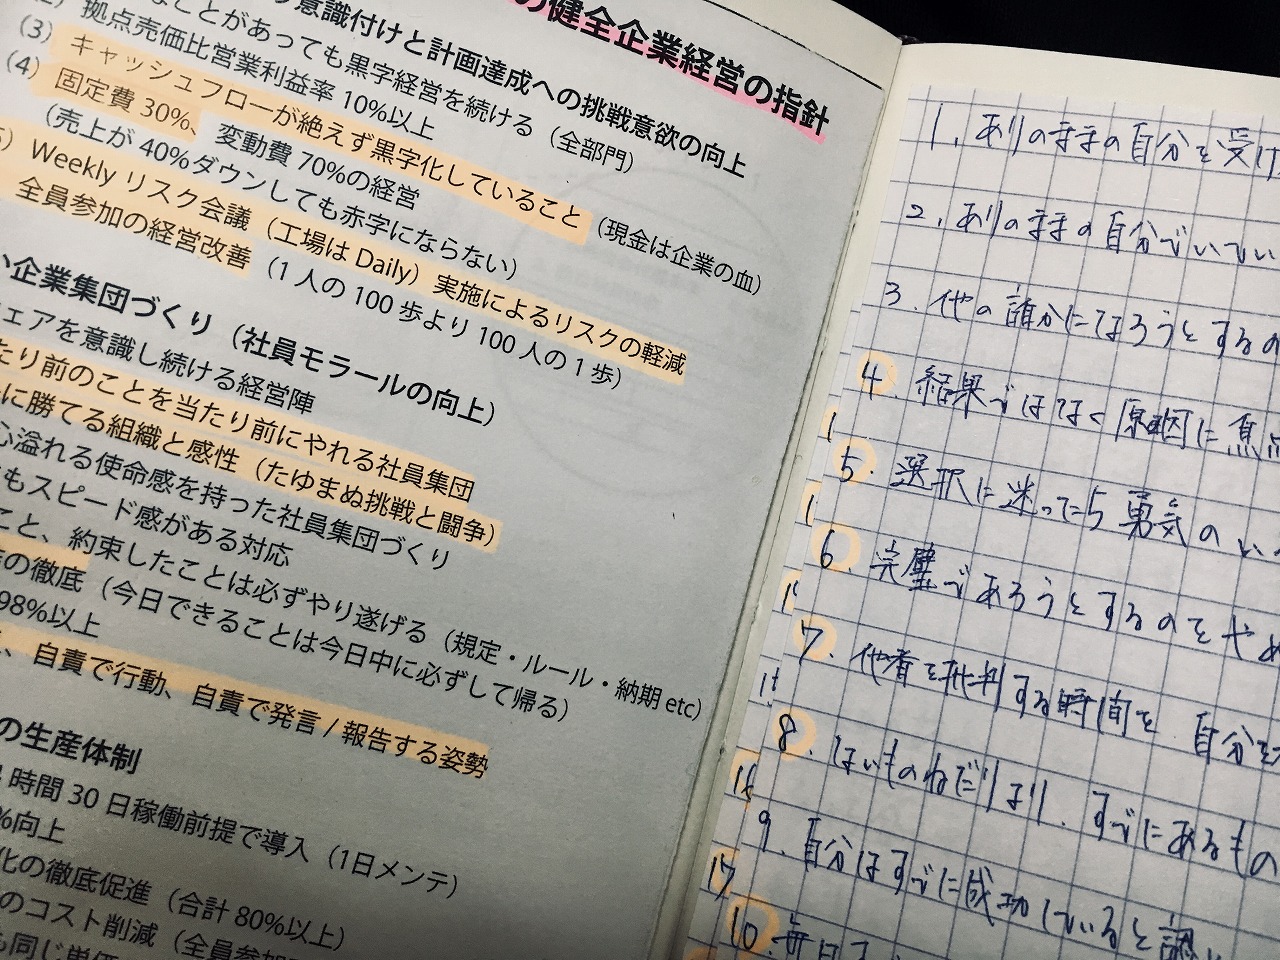 の健全企業経営の指針
意識付けと計画達成への挑戦意欲の向上
ことがあっても黒字経営を続ける（全部門）
拠点売価比営業利益率 10%以上
(3) キャッシュフローが絶えず黒字化していること（現金は企業の血）
(4) 固定費 30%、変動費 70%の経営
（売上が 40%ダウンしても赤字にならない）
Weekly リスク会議（工場は Daily）実施によるリスクの軽減
全員参加の経営改善（1 人の 100 歩より 100 人の 1 歩）
企業集団づくり（社員モラールの向上）
ェアを意識し続ける経営陣
たり前のことを当たり前にやれる社員集団
に勝てる組織と感性（たゆまぬ挑戦と闘争）
心溢れる使命感を持った社員集団づくり
もスピード感がある対応
こと、約束したことは必ずやり遂げる（規定・ルール・納期 etc）
の徹底（今日できることは今日中に必ずして帰る）
98%以上
、自責で行動、自責で発言 / 報告する姿勢
の生産体制
時間 30 日稼働前提で導入（1日メンテ）
%向上
化の徹底促進（合計 80%以上）
のコスト削減（全員参加
も同じ単価
1. ありのままの自分を受け
2. ありのままの自分でいてい
3. 他の誰かになろうとするの
4. 結果ではなく原因に焦点
5. 選択に迷ったら勇気のい
6 完璧であろうとするのをやめ
7. 他者を批判する時間を自分を
8. ないものねだりより、すでにあるもの
9. 自分はすでに成功していると認
10. 毎日
17